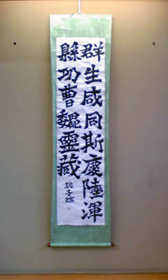 群生咸同斯慶陸渾
縣功曹魏靈藏